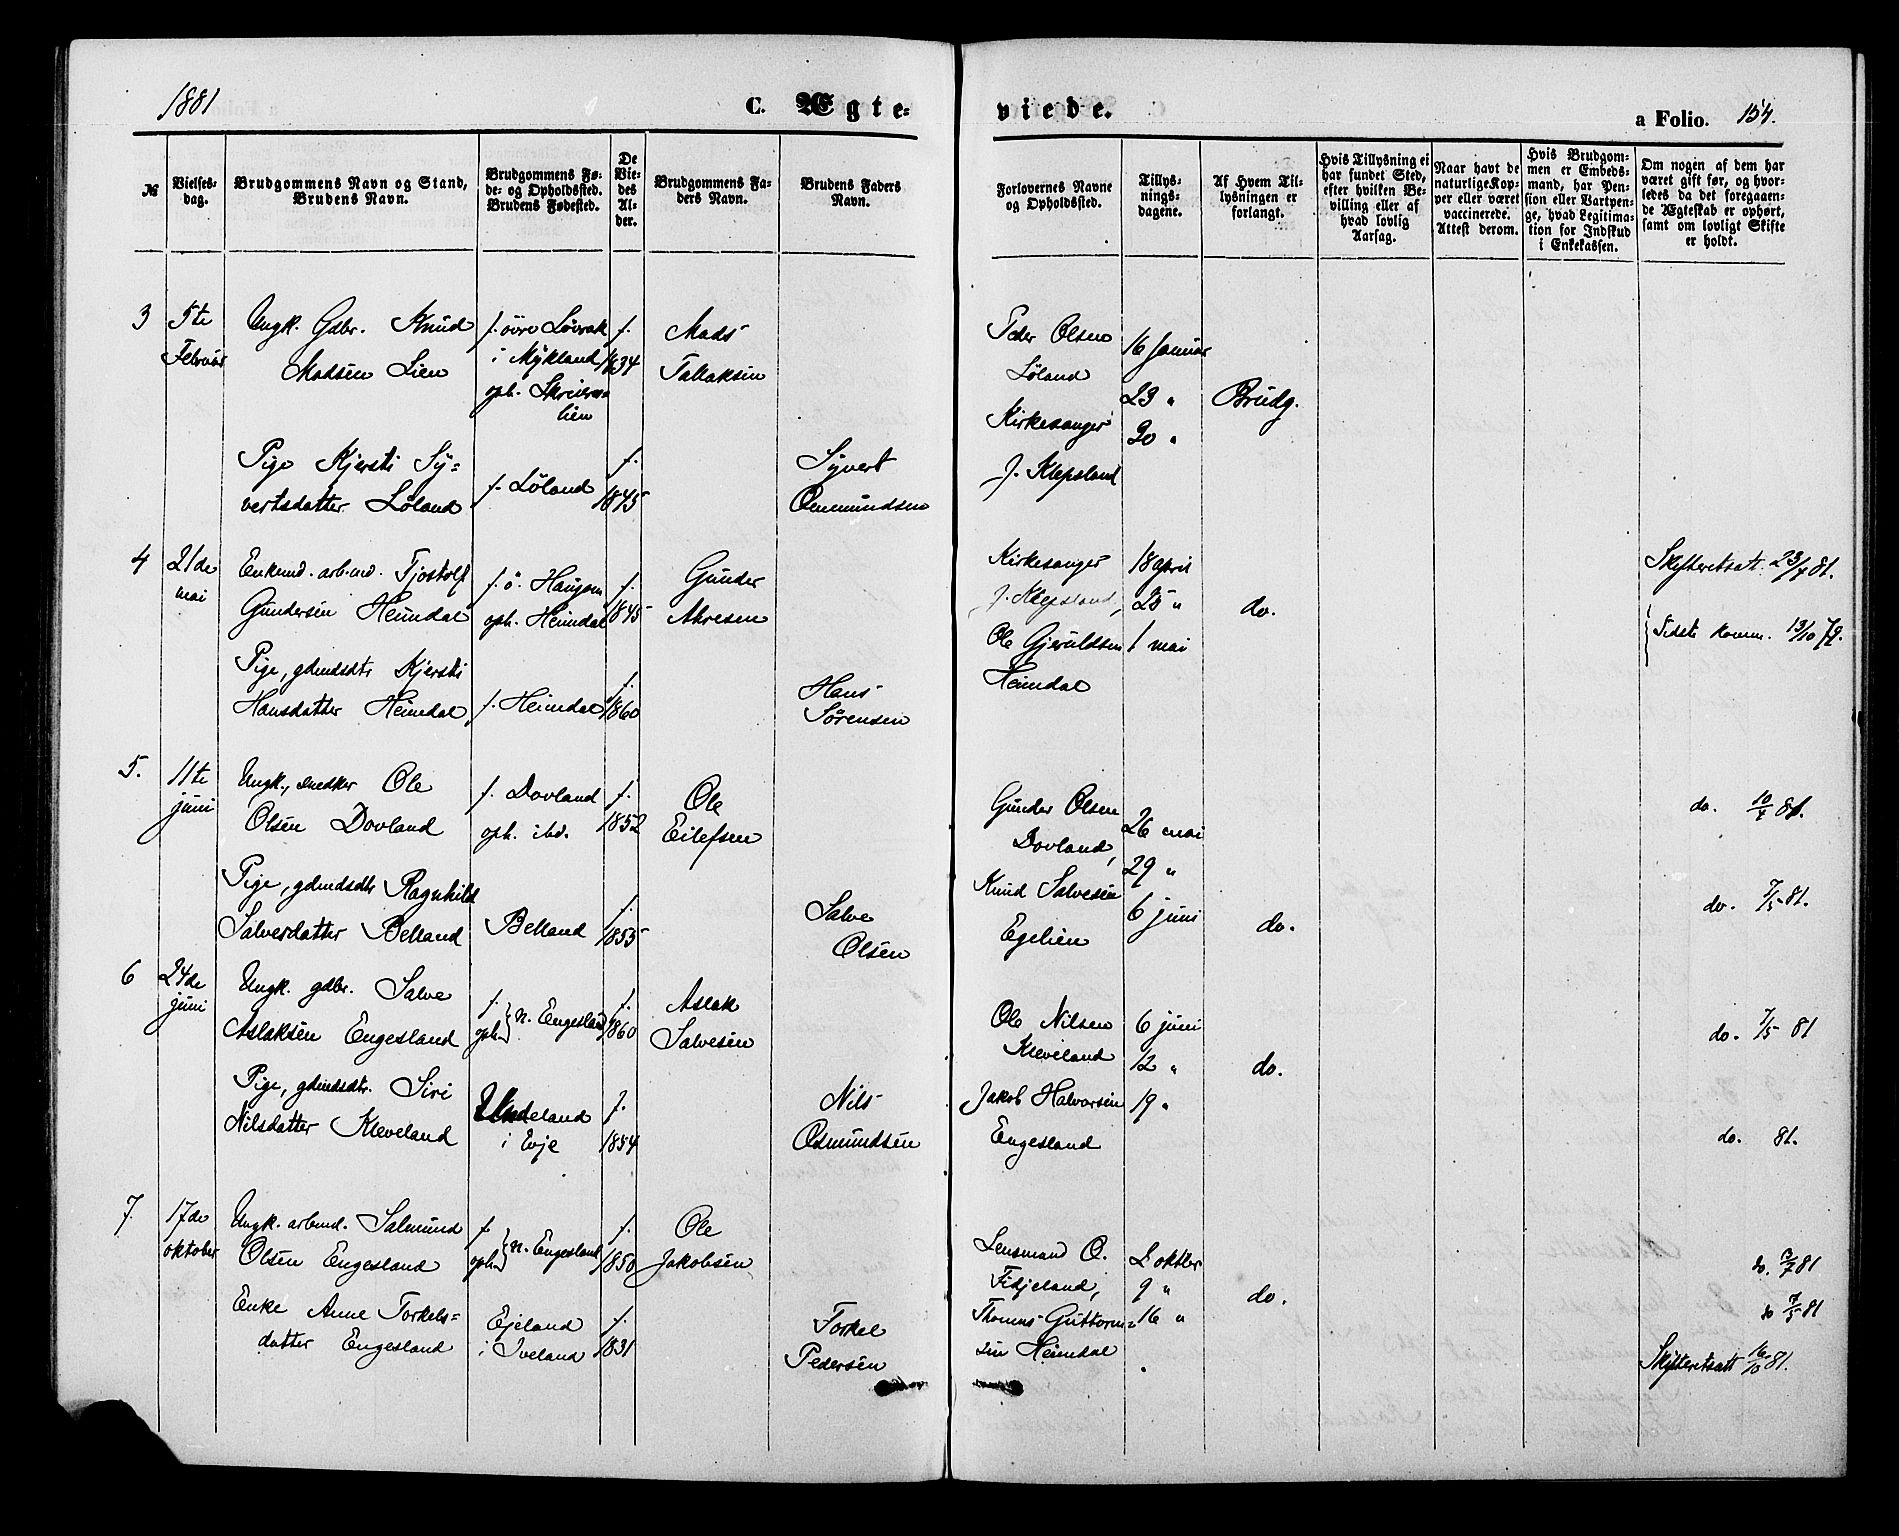 1881
C. Ægte-
viede.
a Folio. 154.
№
Vielses-
dag.
Brudgommens Navn og Stand,
Brudens Navn.
Brudgommens Fø-
de- og Opholdssted.
Brudens Fødested.
De
Vie-
des
Al-
der.
Brudgommens Fa-
ders Navn.
Brudens Faders
Navn.
Forlovernes Navne
og Opholdssted.
Tillys-
nings-
dagene.
Af Hvem Til-
lysningen er
forlangt.
Hvis Tillysning ei
har fundet Sted,
efter hvilken Be-
villing eller af
hvad lovlig
Aarsag.
Naar havt de
naturlige Kop-
per eller været
vaccinerede.
Attest derom.
Hvis Brudgom-
men er Embeds-
mand, har Pen-
sion eller Vartpen-
ge, hvad Legitima-
tion for Indskud
i Enkekassen.
Om nogen af dem har
været gift før, og hvor-
ledes da det foregaaen-
de Ægteskab er ophørt,
samt om lovligt Skifte
er holdt.
3
5te
Februar
Ungk. Gdbr. Knud
Madsen Lien
f. övre Lövrak
i Mykland
oph.
lien
f.
1834
Mads
Tallaksen
Peder Olsen
Löland
Kirkesanger
J. Klepsland
16 Januar
23 "
30 "
Brudg.
Pige Kjersti Sy=
vertsdatter Löland
f. Löland
f.
1845
Syvert
Omundsen
4
21de
mai
Enkemd. arb.md. Tjostolf
Gundersen Heimdal
f. ö. Haugom
oph. Heimdal
f.
1845
Gunder
Kirkesanger
J. Klepsland,
Ole Gjeruldsen
Heimdal
18 april
25 "
1 mai
do.
Skifteretsatt. 23/4 81.
Sidste komm. 13/10 79.
Pige, gdmdsdtr Kjersti
Hansdatter Heimdal
f. Heimdal
f.
1860
Hans
Sörensen
5.
11te
juni
Ungk., snedker Ole
Olsen Dovland
f. Dovland
oph. ibd.
f.
1852
Ole
Eilefsen
Gunder Olsen
Dovland,
Knud Salvesen
Egelien
26 mai
29 "
6 juni
do.
do. 10/4 81.
Pige, gdmdsdtr Ragnhild
Salvesdatter Belland
Belland
f.
1855
Salve
Olsen
do. 7/5 81.
6
24de
juni
Ungk. gdbr. Salve
Aslaksen Engesland
f.
oph. } n. Engesland
f.
1860
Aslak
Salvesen
Ole Nilsen
Kleveland
Jakob Halvorsen
Engesland
6 juni
12 "
19 "
do.
do. 7/5 81
Pige, gdmdsdtr. Siri
Nilsdatter Kleveland
i Evje
f.
1854
Nils
Osmundsen
do. 81.
7.
17de
oktober
Ungk. arbmd. Salmund
Olsen Engesland
f.
oph. } n. Engesland
f.
1850
Ole
Jakobsen
Lensmand O.
Fidjeland,
Thomas Guttorm=
sen Heimdal
2 oktber
9 "
16 "
do.
do. 3/7 81
Enke Anne Torkels=
datter Engesland
Ejeland
i Iveland
f.
1831
Torkel
Pedersen
do 7/5 81
Skifteretsatt 16/10 81.